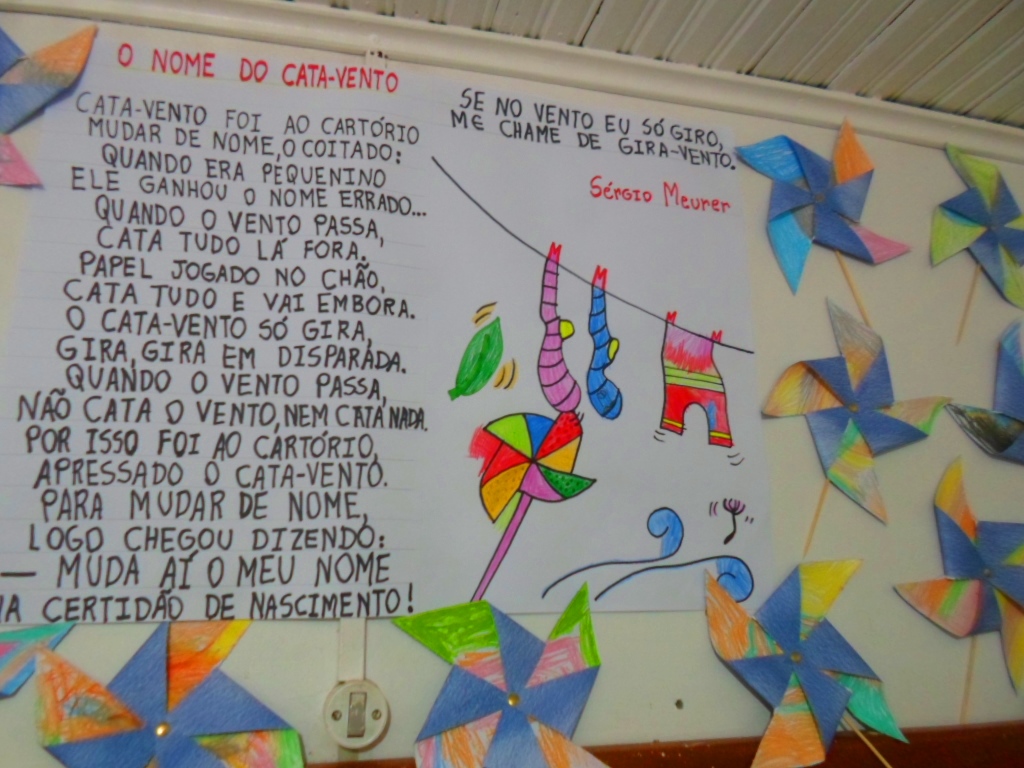 O NOME DO CATA-VENTO
CATA-VENTO FOI AO CARTÓRIO
MUDAR DE NOME, O COITADO:
QUANDO ERA PEQUENINO
ELE GANHOU O NOME ERRADO...
QUANDO O VENTO PASSA,
CATA TUDO LÁ FORA.
PAPEL JOGADO NO CHÃO,
CATA TUDO E VAI EMBORA.
O CATA-VENTO SÓ GIRA,
GIRA, GIRA EM DISPARADA.
QUANDO O VENTO PASSA,
NÃO CATA O VENTO, NEM CATA NADA.
POR ISSO FOI AO CARTÓRIO,
APRESSADO O CATA-VENTO.
PARA MUDAR DE NOME,
LOGO CHEGOU DIZENDO:
— MUDA AÍ O MEU NOME
NA CERTIDÃO DE NASCIMENTO!
SE NO VENTO EU SÓ GIRO,
ME CHAME DE GIRA-VENTO.
Sérgio Meurer